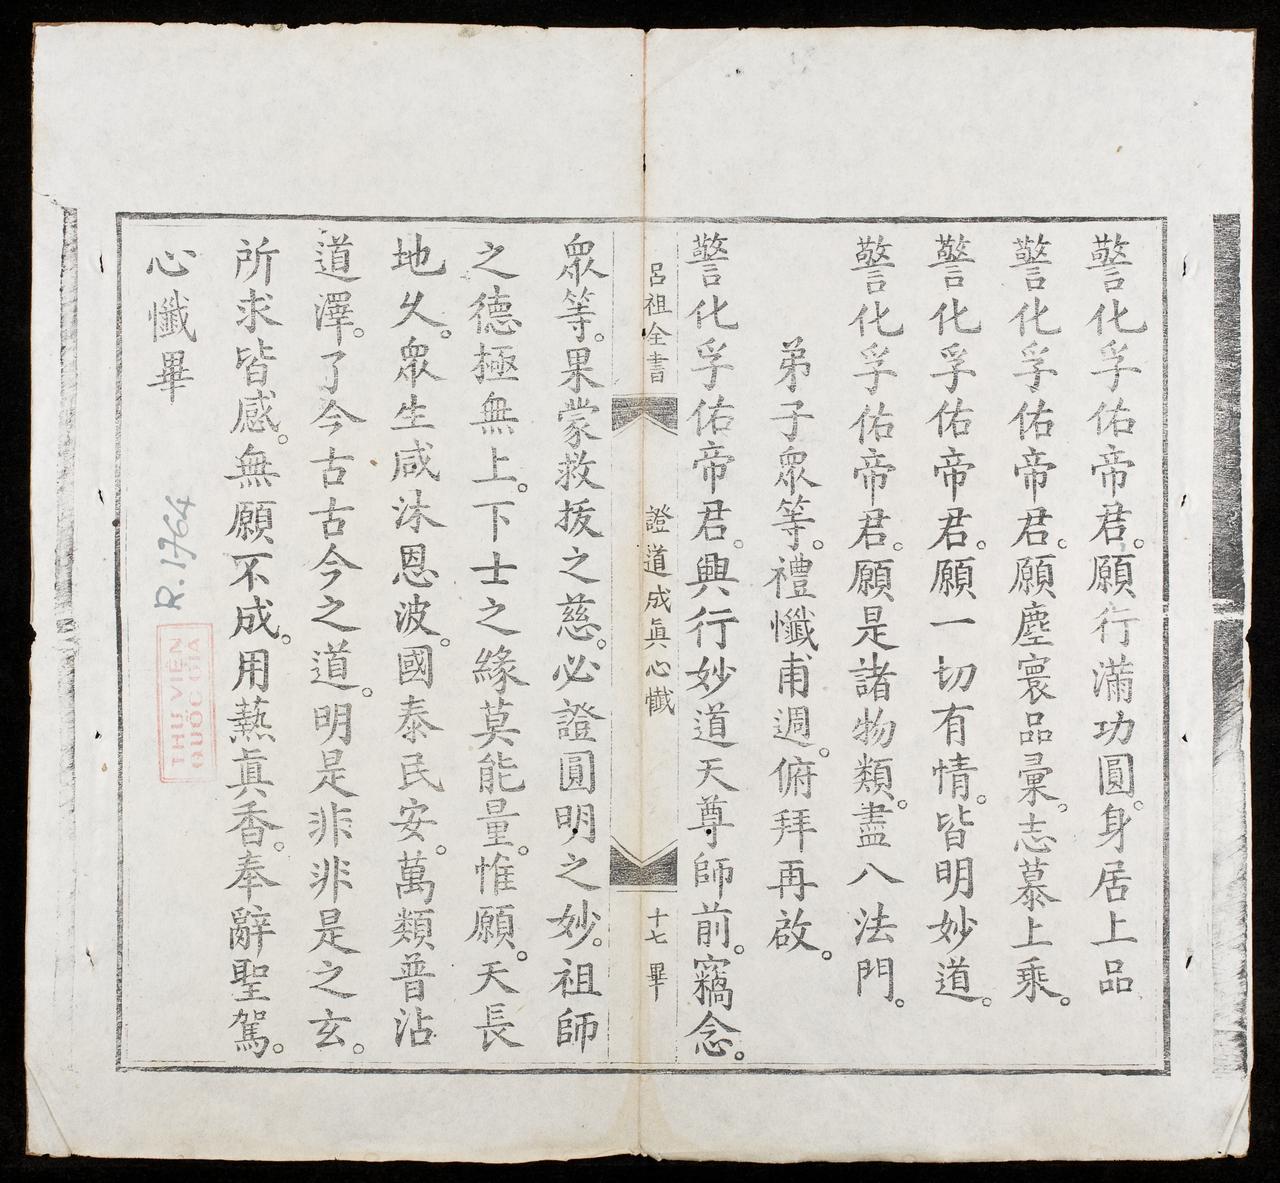 警化孚佑帝君。願行滿功圓。身居上品
警化孚佑帝君。願塵寰品彙。志慕上乘。
警化孚佑帝君。願一切有情。皆明妙道。
警化孚佑帝君。願是諸物類。盡入法門。
弟子眾等。禮懺甫週。俯拜再啟。
警化孚佑帝君。興行妙道天尊師前。竊念。
呂祖全書 證道成眞心懺 十七 畢
眾等。果蒙救拔之慈。必證圓明之妙。祖師
之德極無上。下士之緣莫能量。惟願。天長
地久。眾生咸沐恩波。國泰民安。萬類普沾
道澤。了今古古今之道。明是非非是之玄。
所求皆感。無願不成。用爇眞香。奉辭聖駕。
心懺畢
R.1764
THƯ VIỆN
QUỐC GIA